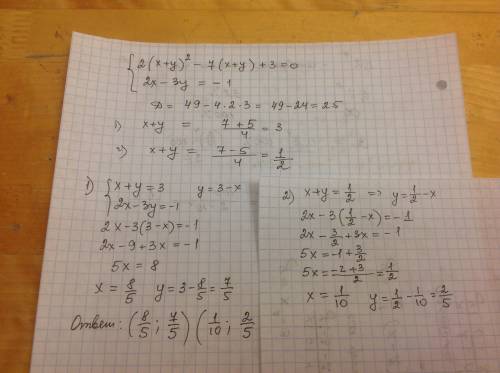 { 2(x+y)² - 7(x+y) + 3 = 0
2x - 3y = -1
D = 49 - 4·2·3 = 49 - 24 = 25
1) x+y = (7+5)/4 = 3
2) x+y = (7-5)/4 = 1/2
1) { x+y = 3 y = 3-x
2x - 3y = -1
2x - 3(3-x) = -1
2x - 9 + 3x = -1
5x = 8
x = 8/5 y = 3 - 8/5 = 7/5
Ответ: (8/5; 7/5) (1/10; 2/5
2) x+y = 1/2 => y = 1/2 - x
2x - 3(1/2 - x) = -1
2x - 3/2 + 3x = -1
5x = -1 + 3/2
5x = (-2+3)/2 = 1/2
x = 1/10 y = 1/2 - 1/10 = 2/5